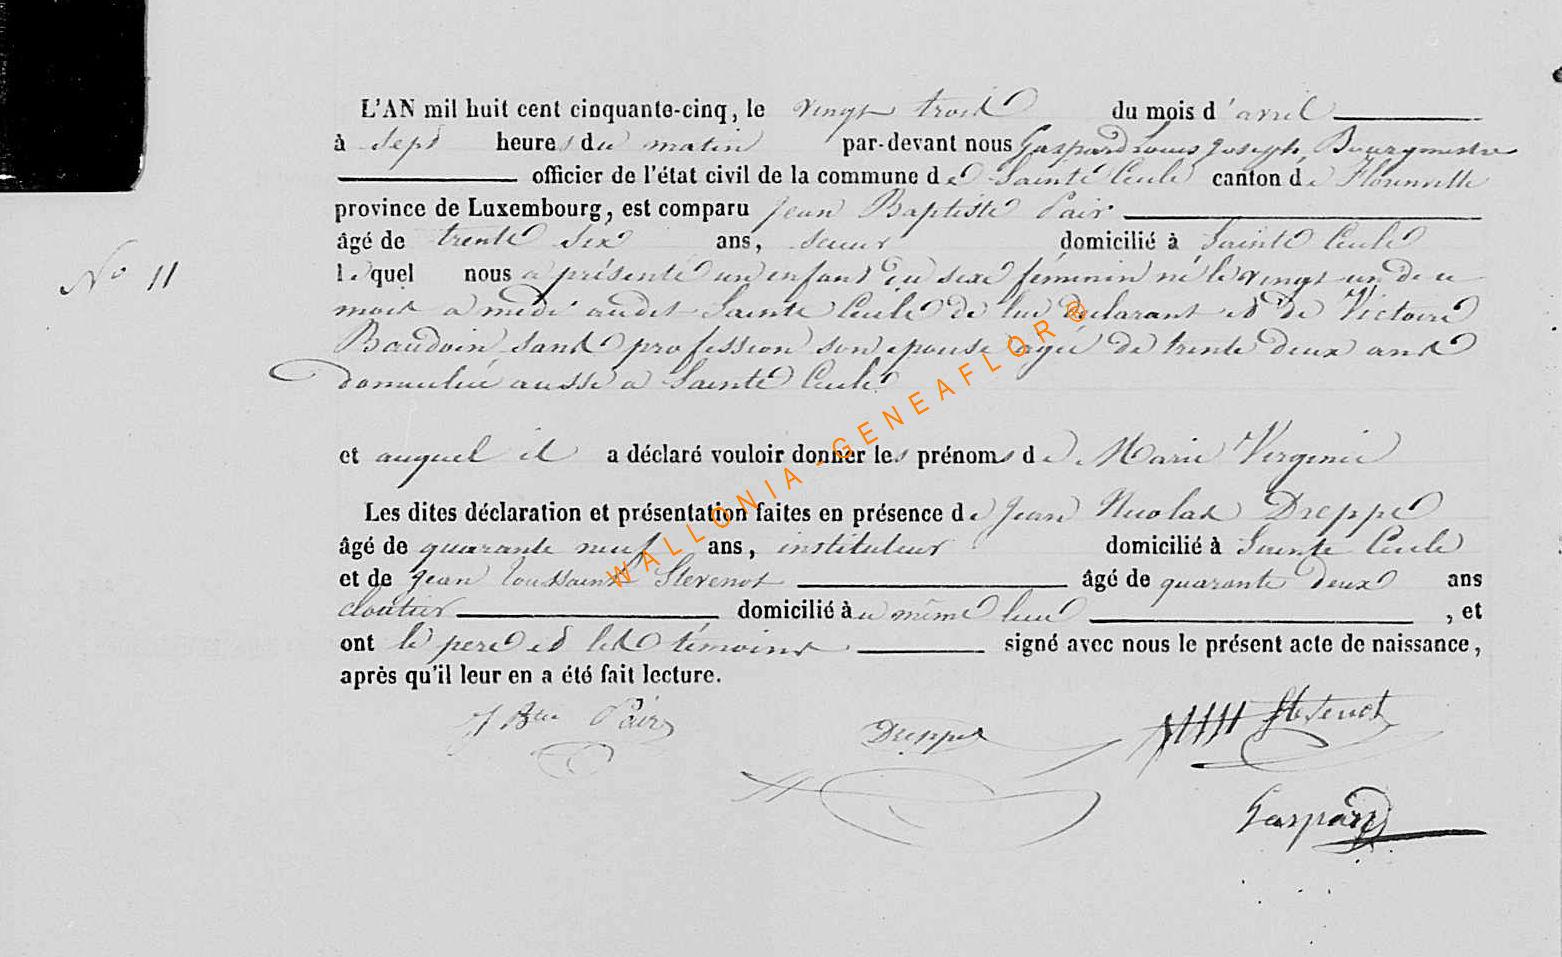 L'AN mil huit cent cinquante-cinq, le vingt trois du mois d'avril
à sept heures du matin par-devant nous Gaspard Louis Joseph, Bourgmestre
officier de l'état civil de la commune de Sainte Cecile canton de Florenville
province de Luxembourg, est comparu Jean Baptiste Pair
âgé de trente six ans, scieur domicilié à Sainte Cecile
N° 11
lequel nous a présenté un enfant du sexe féminin né le vingt un de ce
mois a midi audit Sainte Cecile de lui déclarant et de Victoire
Baudoin sans profession son epouse agée de trente deux ans
domiciliée aussi a Sainte Cecile
et auquel il a déclaré vouloir donner les prénoms de Marie Virginie
Les dites déclaration et présentation faites en présence de Jean Nicolas Dreppe
âgé de quarante neuf ans, instituteur domicilié à Sainte Cecile
et de Jean Toussaint Stevenot âgé de quarante deux ans
cloutier domicilié au même lieu , et
ont le pere et les témoins signé avec nous le présent acte de naissance,
après qu'il leur en a été fait lecture.
J Bte Pair
Dreppe
Stevenot
Gaspard
WALLONIA-GENEAFLOR®